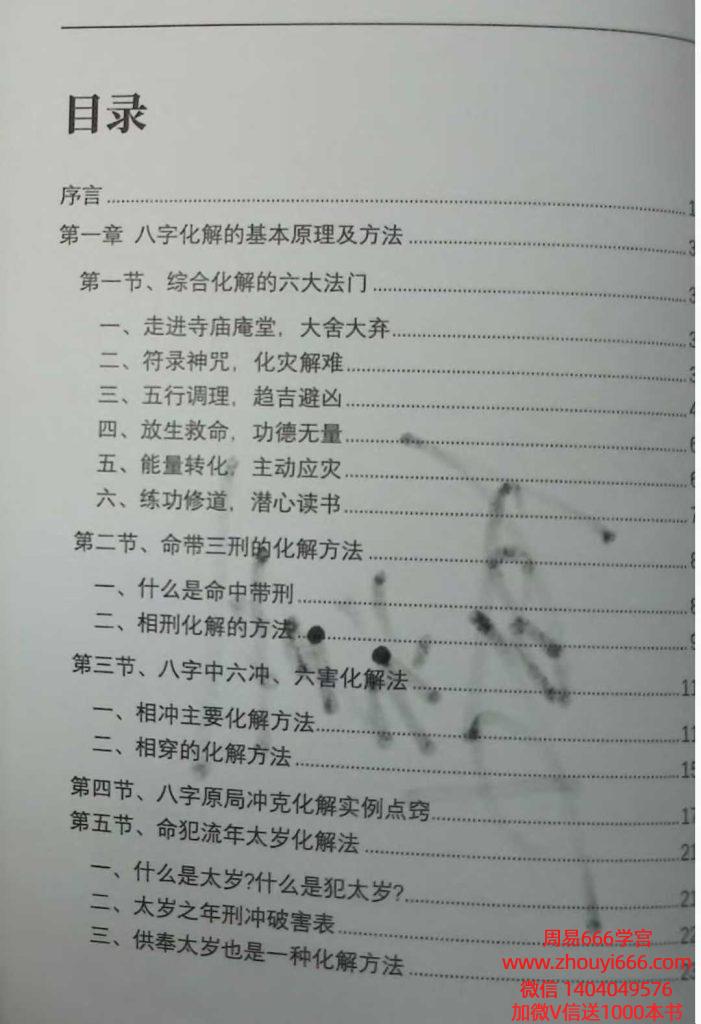 目录
序言 1
第一章 八字化解的基本原理及方法 3
第一节、综合化解的六大法门 3
一、走进寺庙庵堂，大舍大弃 3
二、符录神咒，化灾解难 3
三、五行调理，趋吉避凶 4
四、放生救命，功德无量 6
五、能量转化，主动应灾 6
六、练功修道，潜心读书 7
第二节、命带三刑的化解方法 8
一、什么是命中带刑 8
二、相刑化解的方法 9
第三节、八字中六冲、六害化解法 11
一、相冲主要化解方法 11
二、相穿的化解方法 15
第四节、八字原局冲克化解实例点窍 17
第五节、命犯流年太岁化解法 21
一、什么是太岁?什么是犯太岁? 21
二、太岁之年刑冲破害表 22
三、供奉太岁也是一种化解方法
周易666学宫
www.zhouyi666.com
微信 1404049576
加微V信送1000本书